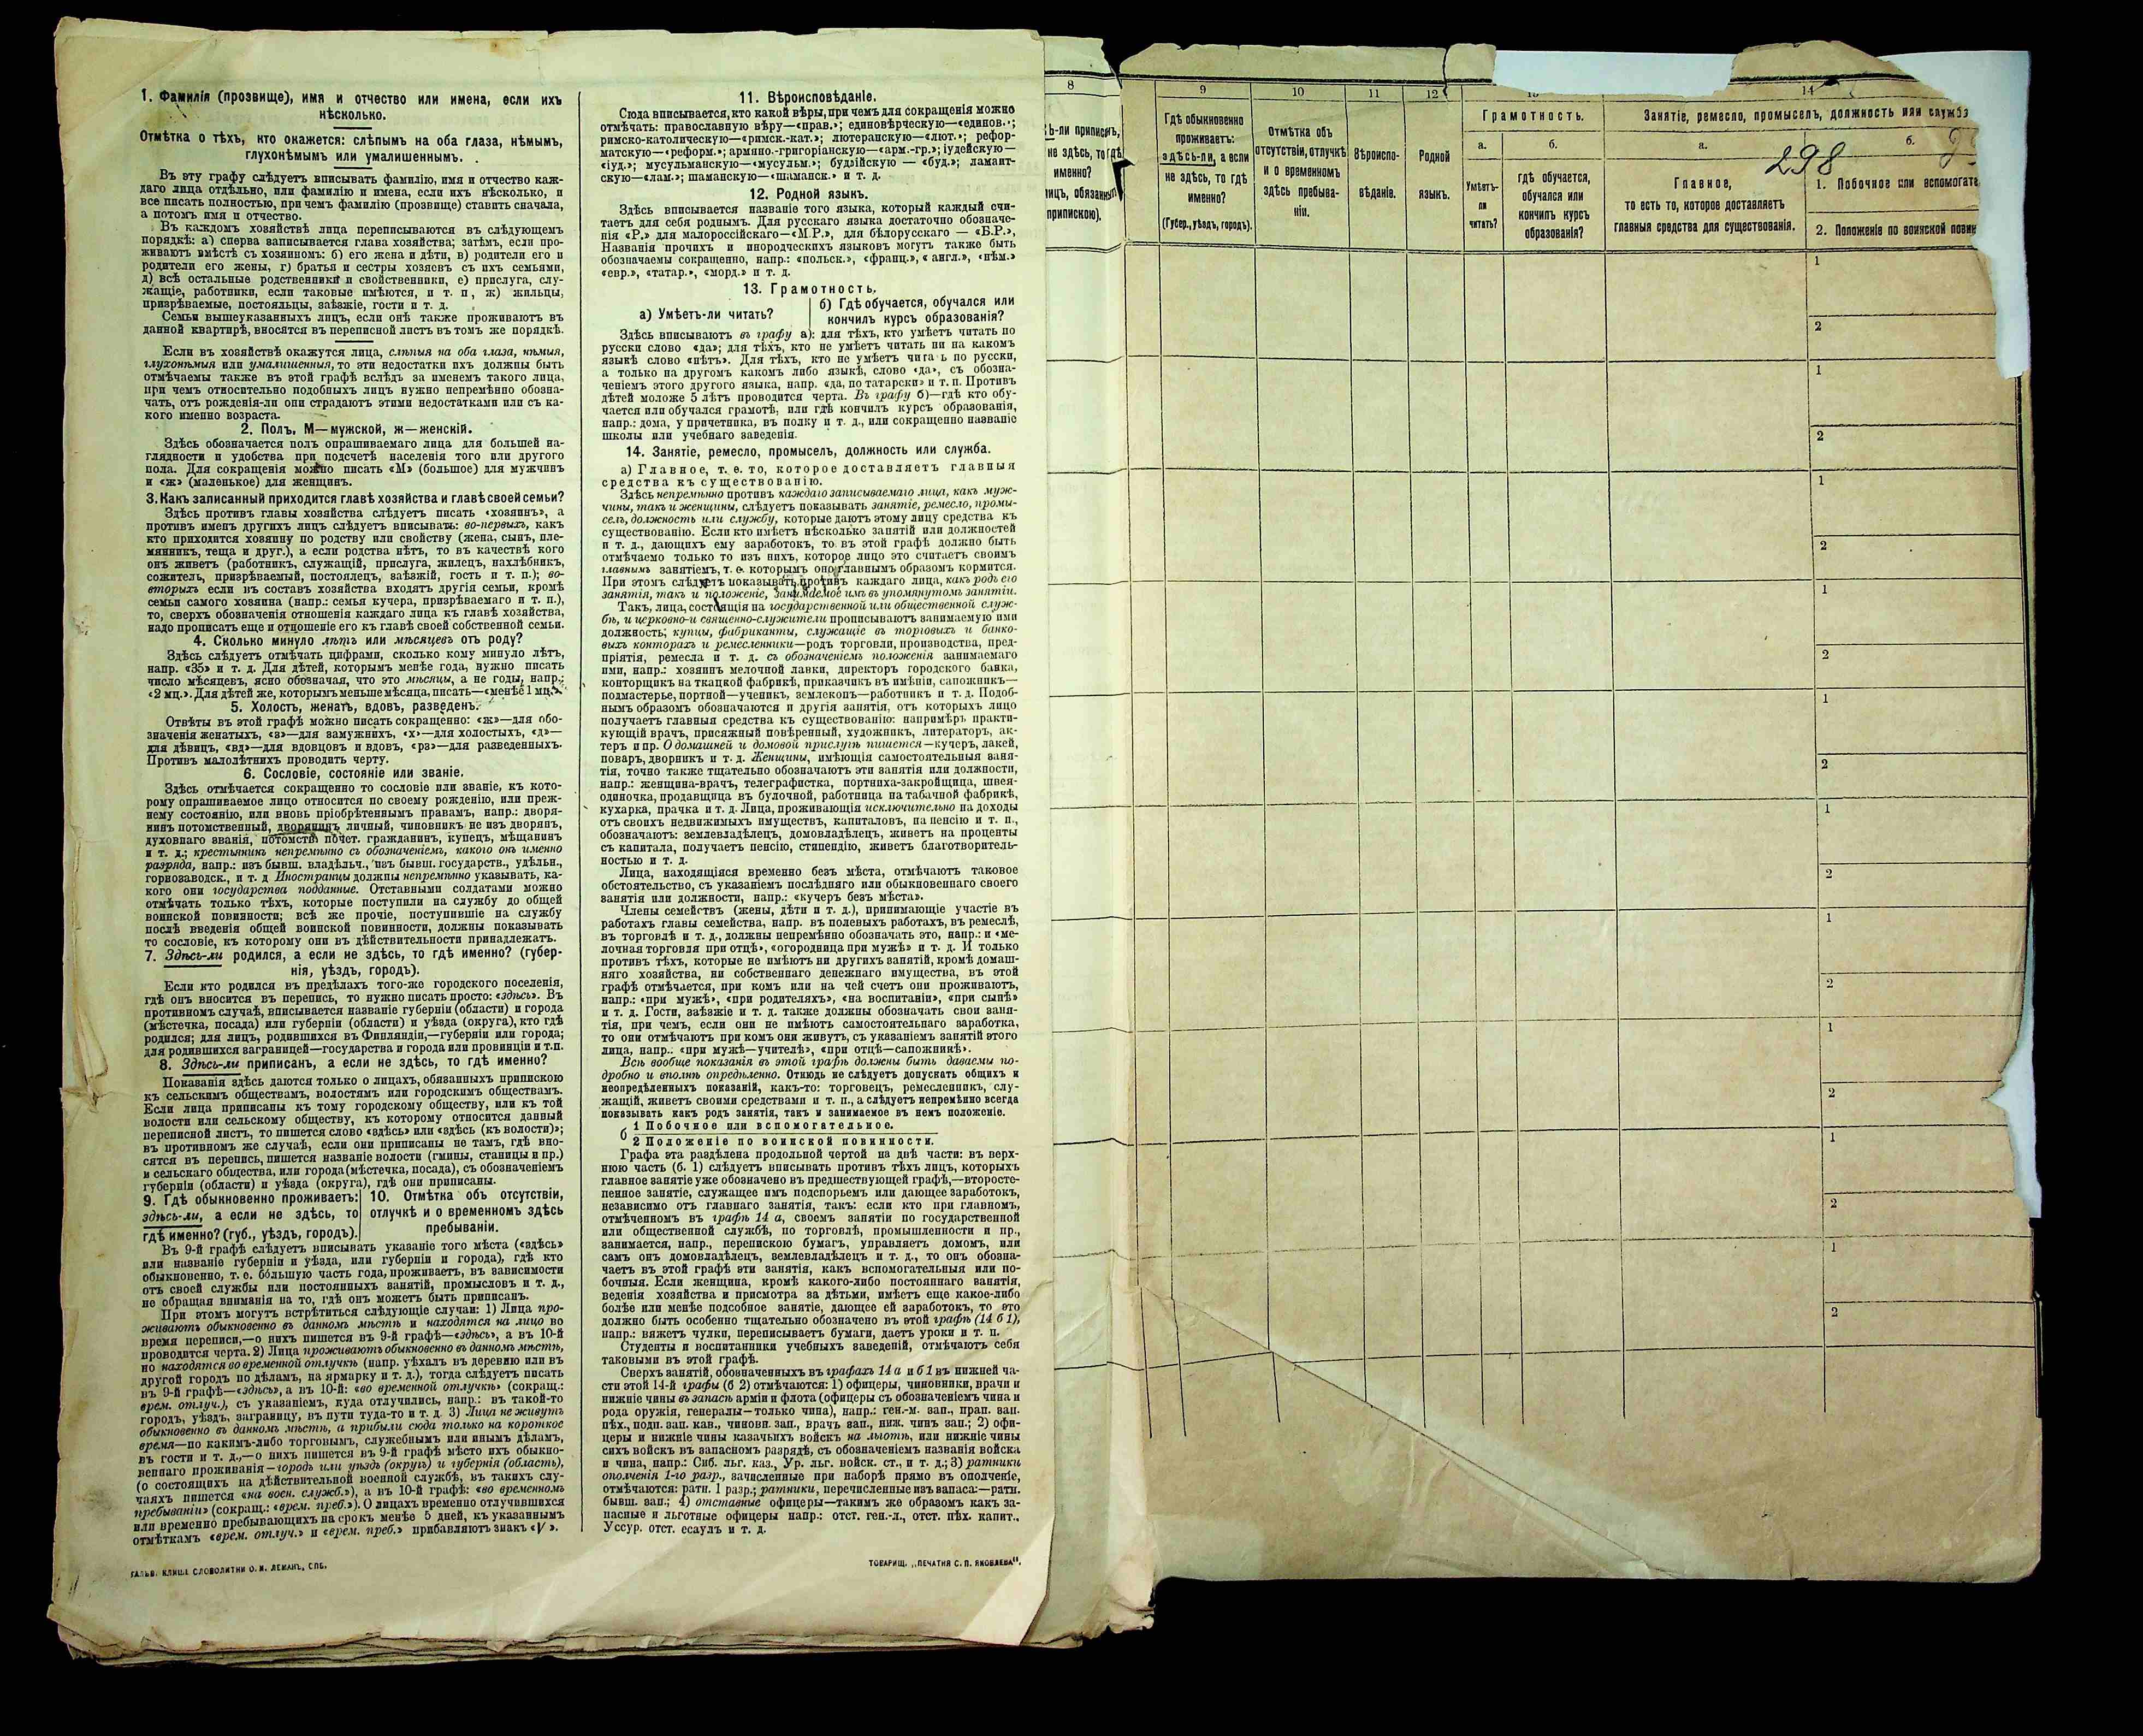 1. Фамилія (прозвище), имя и отчество или имена, если ихъ
нѣсколько.
Отмѣтка о тѣхъ, кто окажется: слѣпымъ на оба глаза, нѣмымъ,
глухонѣмымъ или умалишеннымъ.
Въ эту графу слѣдуетъ вписывать фамилію, имя и отчество каж-
даго лица отдѣльно, или фамилію и имена, если ихъ нѣсколько, и
все писать полностью, при чемъ фамилію (прозвище) ставить сначала,
а потомъ имя и отчество.
Въ каждомъ хозяйствѣ лица переписываются въ слѣдующемъ
порядкѣ: а) сперва записывается глава хозяйства; затѣмъ, если про-
живаютъ вмѣстѣ съ хозяиномъ: б) его жена и дѣти, в) родители его и
родители его жены, г) братья и сестры хозяевъ съ ихъ семьями,
д) всѣ остальные родственники и свойственники, е) прислуга, слу-
жащіе, работники, если таковые имѣются, и т. п, ж) жильцы,
призрѣваемые, постояльцы, заѣзжіе, гости и т. д.
Семьи вышеуказанныхъ лицъ, если онѣ также проживаютъ въ
данной квартирѣ, вносятся въ переписной листъ въ томъ же порядкѣ.
Если въ хозяйствѣ окажутся лица, слѣпыя на оба глаза, нѣмыя,
глухонѣмыя или умалишенныя, то эти недостатки ихъ должны быть
отмѣчаемы также въ этой графѣ вслѣдъ за именемъ такого лица,
при чемъ относительно подобныхъ лицъ нужно непремѣнно обозна-
чать, отъ рожденія-ли они страдаютъ этими недостатками или съ ка-
кого именно возраста.
2. Полъ, М—мужской, ж—женскій.
Здѣсь обозначается полъ опрашиваемаго лица для большей на-
глядности и удобства при подсчетѣ населенія того или другого
пола. Для сокращенія можно писать «М» (большое) для мужчинъ
и «ж» (маленькое) для женщинъ.
3. Какъ записанный приходится главѣ хозяйства и главѣ своей семьи?
Здѣсь противъ главы хозяйства слѣдуетъ писать «хозяинъ», а
противъ именъ другихъ лицъ слѣдуетъ вписывать: во-первыхъ, какъ
кто приходится хозяину по родству или свойству (жена, сынъ, пле-
мянникъ, теща и друг.), а если родства нѣтъ, то въ качествѣ кого
онъ живетъ (работникъ, служащій, прислуга, жилецъ, нахлѣбникъ,
сожитель, призрѣваемый, постоялецъ, заѣзжій, гость и т. п.); во-
вторыхъ если въ составъ хозяйства входятъ другія семьи, кромѣ
семьи самого хозяина (напр.: семья кучера, призрѣваемаго и т. п.),
то, сверхъ обозначенія отношенія каждаго лица къ главѣ хозяйства,
надо прописать еще и отношеніе его къ главѣ своей собственной семьи.
4. Сколько минуло лѣтъ или мѣсяцевъ отъ роду?
Здѣсь слѣдуетъ отмѣчать цифрами, сколько кому минуло лѣтъ,
напр. «35» и т. д. Для дѣтей, которымъ менѣе года, нужно писать
число мѣсяцевъ, ясно обозначая, что это мѣсяцы, а не годы, напр.:
«2 мц.». Для дѣтей же, которымъ меньше мѣсяца, писать—«менѣе 1 мц.».
5. Холостъ, женатъ, вдовъ, разведенъ.
Отвѣты въ этой графѣ можно писать сокращенно: «ж»—для обо-
значенія женатыхъ, «з»—для замужнихъ, «х»—для холостыхъ, «д»—
для дѣвицъ, «вд»—для вдовцовъ и вдовъ, «рз»—для разведенныхъ.
Противъ малолѣтнихъ проводить черту.
6. Сословіе, состояніе или званіе.
Здѣсь отмѣчается сокращенно то сословіе или званіе, къ кото-
рому опрашиваемое лицо относится по своему рожденію, или преж-
нему состоянію, или вновь пріобрѣтеннымъ правамъ, напр.: дворя-
нинъ потомственный, дворянинъ личный, чиновникъ не изъ дворянъ,
духовнаго званія, потомств. почет. гражданинъ, купецъ, мѣщанинъ
и т. д.; крестьянинъ непремѣнно съ обозначеніемъ, какого онъ именно
разряда, напр.: изъ бывш. владѣльч., изъ бывш. государств., удѣльн.,
горнозаводск., и т. д Иностранцы должны непремѣнно указывать, ка-
кого они государства подданные. Отставными солдатами можно
отмѣчать только тѣхъ, которые поступили на службу до общей
воинской повинности; всѣ же прочіе, поступившіе на службу
послѣ введенія общей воинской повинности, должны показывать
то сословіе, къ которому они въ дѣйствительности принадлежатъ.
7. Здѣсь-ли родился, а если не здѣсь, то гдѣ именно? (губер-
нія, уѣздъ, городъ).
Если кто родился въ предѣлахъ того-же городского поселенія,
гдѣ онъ вносится въ перепись, то нужно писать просто: «здѣсь». Въ
противномъ случаѣ, вписывается названіе губерніи (области) и города
(мѣстечка, посада) или губерніи (области) и уѣзда (округа), кто гдѣ
родился; для лицъ, родившихся въ Финляндіи,—губерніи или города;
для родившихся заграницей—государства и города или провинціи и т.п.
8. Здѣсь-ли приписанъ, а если не здѣсь, то гдѣ именно?
Показанія здѣсь даются только о лицахъ, обязанныхъ припискою
къ сельскимъ обществамъ, волостямъ или городскимъ обществамъ.
Если лица приписаны къ тому городскому обществу, или къ той
волости или сельскому обществу, къ которому относится данный
переписной листъ, то пишется слово «здѣсь» или «здѣсь (къ волости)»;
въ противномъ же случаѣ, если они приписаны не тамъ, гдѣ вно-
сятся въ перепись, пишется названіе волости (гмины, станицы и пр.)
и сельскаго общества, или города (мѣстечка, посада), съ обозначеніемъ
губерніи (области) и уѣзда (округа), гдѣ они приписаны.
9. Гдѣ обыкновенно проживаетъ:
здѣсь-ли, а если не здѣсь, то
гдѣ именно? (губ., уѣздъ, городъ).
10. Отмѣтка объ отсутствіи,
отлучкѣ и о временномъ здѣсь
пребываніи.
Въ 9-й графѣ слѣдуетъ вписывать указаніе того мѣста («здѣсь»
или названіе губерніи и уѣзда, или губерніи и города), гдѣ кто
обыкновенно, т. е. большую часть года, проживаетъ, въ зависимости
отъ своей службы или постоянныхъ занятій, промысловъ и т. д.,
не обращая вниманія на то, гдѣ онъ можетъ быть приписанъ.
При этомъ могутъ встрѣтиться слѣдующіе случаи: 1) Лица про-
живаютъ обыкновенно въ данномъ мѣстѣ и находятся на лицо во
время переписи,—о нихъ пишется въ 9-й графѣ—«здѣсь», а въ 10-й
проводится черта. 2) Лица проживаютъ обыкновенно въ данномъ мѣстѣ,
но находятся во временной отлучкѣ (напр. уѣхалъ въ деревню или въ
другой городъ по дѣламъ, на ярмарку и т. д.), тогда слѣдуетъ писать
въ 9-й графѣ—«здѣсь», а въ 10-й: «во временной отлучкѣ» (сокращ.:
врем. отлуч.), съ указаніемъ, куда отлучились, напр.: въ такой-то
городъ, уѣздъ, заграницу, въ пути туда-то и т. д. 3) Лица не живутъ
обыкновенно въ данномъ мѣстѣ, а прибыли сюда только на короткое
время—по какимъ-либо торговымъ, служебнымъ или инымъ дѣламъ,
въ гости и т. д.,—о нихъ пишется въ 9-й графѣ мѣсто ихъ обыкно-
веннаго проживанія—городъ или уѣздъ (округъ) и губернія (область),
(о состоящихъ на дѣйствительной военной службѣ, въ такихъ слу-
чаяхъ пишется «на воен. служб.»), а въ 10-й графѣ: «во временномъ
пребываніи» (сокращ.: «врем. преб.»). О лицахъ временно отлучившихся
или временно пребывающихъ на срокъ менѣе 5 дней, къ указаннымъ
отмѣткамъ «врем. отлуч.» и «врем. преб.» прибавляютъ знакъ «V».
ГАЛЬВ. КЛИШЕ СЛОВОЛИТНИ О. И. ЛЕМАНЪ, СПБ.
11. Вѣроисповѣданіе.
Сюда вписывается, кто какой вѣры, при чемъ для сокращенія можно
отмѣчать: православную вѣру—«прав.»; единовѣрческую—«единов.»;
римско-католическую—«римск.-кат.»; лютеранскую—«лют.»; рефор-
матскую—«реформ.»; армяно.-григоріанскую—«арм.-гр.»; іудейскую—
«іуд.»; мусульманскую—«мусульм.»; буддійскую — «буд.»; ламаит-
скую—«лам.»; шаманскую—«шаманск.» и т. д.
12. Родной языкъ.
Здѣсь вписывается названіе того языка, который каждый счи-
таетъ для себя роднымъ. Для русскаго языка достаточно обозначе-
нія «Р.» для малороссійскаго—«М.Р.», для бѣлорусскаго — «Б.Р.»,
Названія прочихъ и инородческихъ языковъ могутъ также быть
обозначаемы сокращенно, напр.: «польск.», «франц.», «англ.», «нѣм.»
«евр.», «татар.», «морд.» и т. д.
13. Грамотность.
а) Умѣетъ-ли читать?
б) Гдѣ обучается, обучался или
кончилъ курсъ образованія?
Здѣсь вписываютъ въ графу а): для тѣхъ, кто умѣетъ читать по
русски слово «да»; для тѣхъ, кто не умѣетъ читать ни на какомъ
языкѣ слово «нѣтъ». Для тѣхъ, кто не умѣетъ читать по русски,
а только на другомъ какомъ либо языкѣ, слово «да», съ обозна-
ченіемъ этого другого языка, напр. «да, по татарски» и т. п. Противъ
дѣтей моложе 5 лѣтъ проводится черта. Въ графу б)—гдѣ кто обу-
чается или обучался грамотѣ, или гдѣ кончилъ курсъ образованія,
напр.: дома, у причетника, въ полку и т. д., или сокращенно названіе
школы или учебнаго заведенія.
14. Занятіе, ремесло, промыселъ, должность или служба.
а) Главное, т. е. то, которое доставляетъ главныя
средства къ существованію.
Здѣсь непремѣнно противъ каждаго записываемаго лица, какъ муж-
чины, такъ и женщины, слѣдуетъ показывать занятіе, ремесло, промы-
селъ, должность или службу, которые даютъ этому лицу средства къ
существованію. Если кто имѣетъ нѣсколько занятій или должностей
и т. д., дающихъ ему заработокъ, то въ этой графѣ должно быть
отмѣчаемо только то изъ нихъ, которое лицо это считаетъ своимъ
главнымъ занятіемъ, т. е. которымъ оно главнымъ образомъ кормится.
При этомъ слѣдуетъ показывать противъ каждаго лица, какъ родъ его
занятія, такъ и положеніе, занимаемое имъ въ упомянутомъ занятіи.
Такъ, лица, состоящія на государственной или общественной служ-
бѣ, и церковно-и священно-служители прописываютъ занимаемую ими
должность; купцы, фабриканты, служащіе въ торговыхъ и банко-
выхъ конторахъ и ремесленники—родъ торговли, производства, пред-
пріятія, ремесла и т. д. съ обозначеніемъ положенія занимаемаго
ими, напр.: хозяинъ мелочной лавки, директоръ городского банка,
конторщикъ на ткацкой фабрикѣ, приказчикъ въ имѣніи, сапожникъ—
подмастерье, портной—ученикъ, землекопъ—работникъ и т. д. Подоб-
нымъ образомъ обозначаются и другія занятія, отъ которыхъ лицо
получаетъ главныя средства къ существованію: напримѣръ практи-
кующій врачъ, присяжный повѣренный, художникъ, литераторъ, ак-
теръ и пр. О домашней и домовой прислугѣ пишется—кучеръ, лакей,
поваръ, дворникъ и т. д. Женщины, имѣющія самостоятельныя заня-
тія, точно также тщательно обозначаютъ эти занятія или должности,
напр.: женщина-врачъ, телеграфистка, портниха-закройщица, швея-
одиночка, продавщица въ булочной, работница на табачной фабрикѣ,
кухарка, прачка и т. д. Лица, проживающія исключительно на доходы
отъ своихъ недвижимыхъ имуществъ, капиталовъ, на пенсію и т. п.,
обозначаютъ: землевладѣлецъ, домовладѣлецъ, живетъ на проценты
съ капитала, получаетъ пенсію, стипендію, живетъ благотворитель-
ностью и т. д.
Лица, находящіяся временно безъ мѣста, отмѣчаютъ таковое
обстоятельство, съ указаніемъ послѣдняго или обыкновеннаго своего
занятія или должности, напр.: «кучеръ безъ мѣста».
Члены семействъ (жены, дѣти и т. д.), принимающіе участіе въ
работахъ главы семейства, напр. въ полевыхъ работахъ, въ ремеслѣ,
въ торговлѣ и т. д., должны непремѣнно обозначать это, напр.: и «ме-
лочная торговля при отцѣ», «огородница при мужѣ» и т. д. И только
противъ тѣхъ, которые не имѣютъ ни другихъ занятій, кромѣ домаш-
няго хозяйства, ни собственнаго денежнаго имущества, въ этой
графѣ отмѣчается, при комъ или на чей счетъ они проживаютъ,
напр.: «при мужѣ», «при родителяхъ», «на воспитаніи», «при сынѣ»
и т. д. Гости, заѣзжіе и т. д. также должны обозначать свои заня-
тія, при чемъ, если они не имѣютъ самостоятельнаго заработка,
то они отмѣчаютъ при комъ они живутъ, съ указаніемъ занятій этого
лица, напр.: «при мужѣ—учителѣ», «при отцѣ—сапожникѣ».
Всѣ вообще показанія въ этой графѣ должны быть даваемы по-
дробно и вполнѣ опредѣленно. Отнюдь не слѣдуетъ допускать общихъ и
неопредѣленныхъ показаній, какъ-то: торговецъ, ремесленникъ, слу-
жащій, живетъ своими средствами и т. п., а слѣдуетъ непремѣнно всегда
показывать какъ родъ занятія, такъ и занимаемое въ немъ положеніе.
б
1 Побочное или вспомогательное.
2 Положеніе по воинской повинности.
Графа эта раздѣлена продольной чертой на двѣ части: въ верх-
нюю часть (б. 1) слѣдуетъ вписывать противъ тѣхъ лицъ, которыхъ
главное занятіе уже обозначено въ предшествующей графѣ,—второсте-
пенное занятіе, служащее имъ подспорьемъ или дающее заработокъ,
независимо отъ главнаго занятія, такъ: если кто при главномъ,
отмѣченномъ въ графѣ 14 а, своемъ занятіи по государственной
или общественной службѣ, по торговлѣ, промышленности и пр.,
занимается, напр., перепискою бумагъ, управляетъ домомъ, или
самъ онъ домовладѣлецъ, землевладѣлецъ и т. д., то онъ обозна-
чаетъ въ этой графѣ эти занятія, какъ вспомогательныя или по-
бочныя. Если женщина, кромѣ какого-либо постояннаго занятія,
веденія хозяйства и присмотра за дѣтьми, имѣетъ еще какое-либо
болѣе или менѣе подсобное занятіе, дающее ей заработокъ, то это
должно быть особенно тщательно обозначено въ этой графѣ (14 б 1),
напр.: вяжетъ чулки, переписываетъ бумаги, даетъ уроки и т. п.
Студенты и воспитанники учебныхъ заведеній, отмѣчаютъ себя
таковыми въ этой графѣ.
Сверхъ занятій, обозначенныхъ въ графахъ 14 а и б 1 въ нижней ча-
сти этой 14-й графы (б 2) отмѣчаются: 1) офицеры, чиновники, врачи и
нижніе чины въ запасѣ арміи и флота (офицеры съ обозначеніемъ чина и
рода оружія, генералы—только чина), напр.: ген.-м. зап., прап. зап.
пѣх., подп. зап. кав., чиновн. зап., врачъ зап., ниж. чинъ зап.; 2) офи-
церы и нижніе чины казачьихъ войскъ на льготѣ, или нижніе чины
сихъ войскъ въ запасномъ разрядѣ, съ обозначеніемъ названія войска
и чина, напр.: Сиб. льг. каз., Ур. льг. войск. ст., и т. д.; 3) ратники
ополченія 1-го разр., зачисленные при наборѣ прямо въ ополченіе,
отмѣчаются: ратн. 1 разр.; ратники, перечисленные изъ запаса:—ратн.
бывш. зап.; 4) отставные офицеры—такимъ же образомъ какъ за-
пасные и льготные офицеры напр.: отст. ген.-л., отст. пѣх. капит.,
Уссур. отст. есаулъ и т. д.
ТОВАРИЩ. „ПЕЧАТНЯ С. П. ЯКОВЛЕВА".
8
ь-ли приписанъ,
не здѣсь, то гдѣ
именно?
лицъ, обязанныхъ
припискою).
9
Гдѣ обыкновенно
проживаетъ:
здѣсь-ли, а если
не здѣсь, то гдѣ
именно?
(Губер., уѣздъ, городъ).
10
Отмѣтка объ
отсутствіи, отлучкѣ
и о временномъ
здѣсь пребыва-
ніи.
11
Вѣроиспо-
вѣданіе.
12
Родной
языкъ.
13
Грамотность.
а.
Умѣетъ-
ли
читать?
б.
гдѣ обучается,
обучался или
кончилъ курсъ
образованія?
14
Занятіе, ремесло, промыселъ, должность или служб
а.
298
Главное,
то есть то, которое доставляетъ
главныя средства для существованія.
б.
1. Побочное или вспомогате
2. Положеніе по воинской повин
1
2
1
2
1
2
1
2
1
2
1
2
1
2
1
2
1
2
1
2